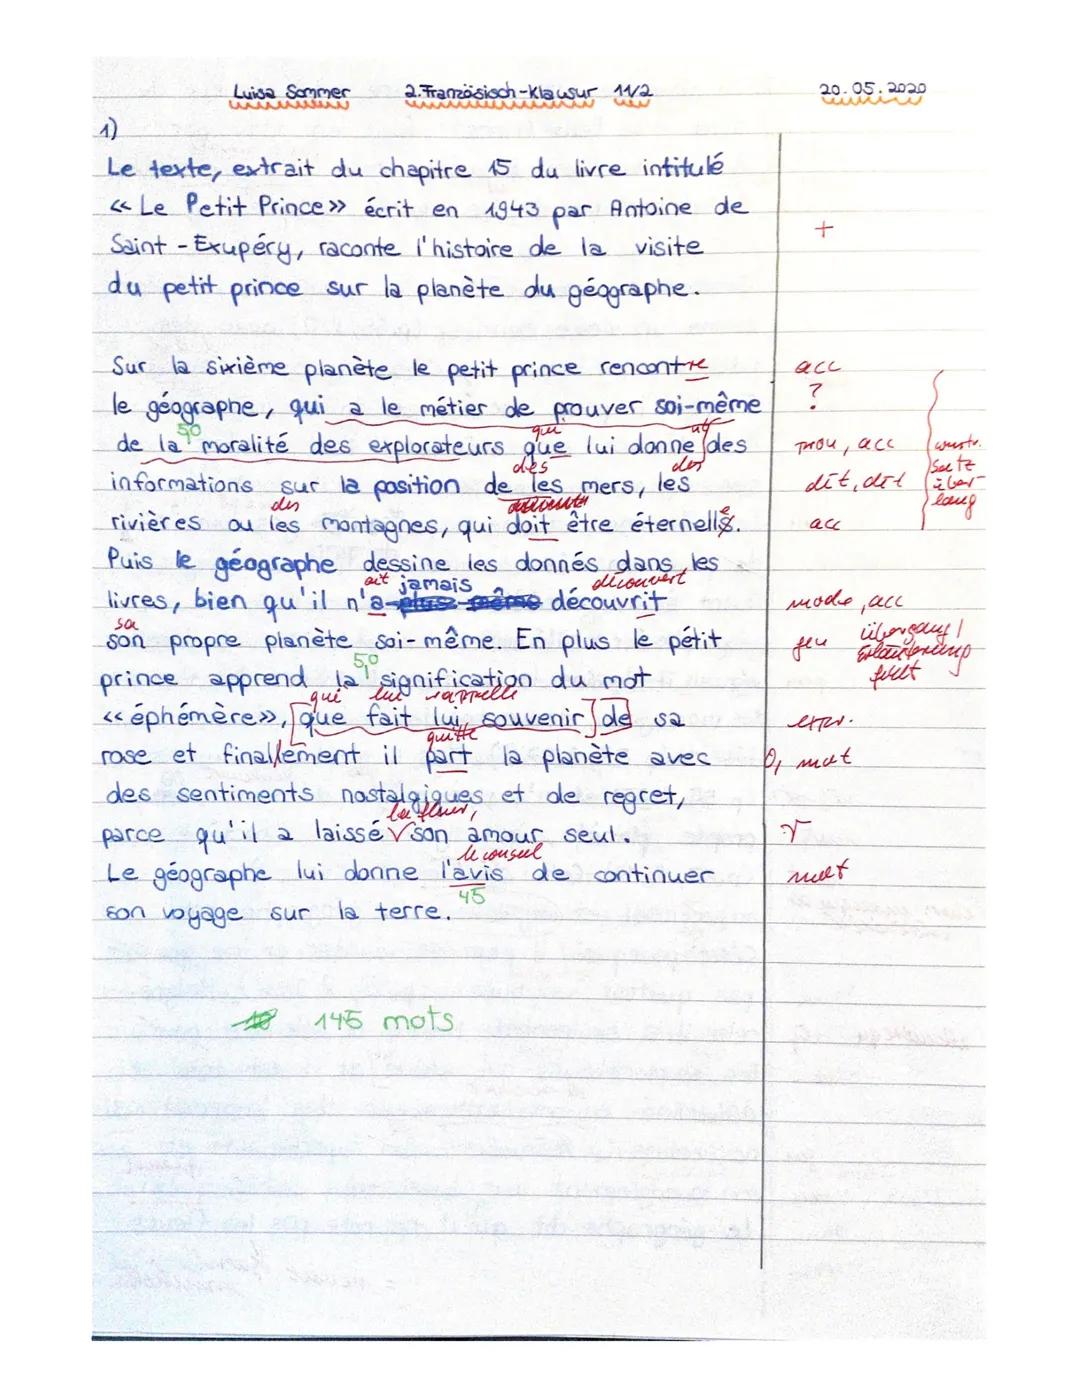 Luisa Sommer 2. Französisch-Klausur 11/2 20.05.2020
1)
Le texte, extrait du chapitre 15 du livre intitulé
<< Le Petit Prince>> écrit en 1943 par Antoine de
+
Saint-Exupéry, raconte l'histoire de la visite
du petit prince sur la planète du géographe.
Sur la sixième planète le petit prince rencontre acc
le géographe, qui a le métier de prouver soi-même ?
50 qui
de la moralité des explorateurs que lui donne des pron, acc
des des
informations sur la position de les mers, les dét, dét
Satz über lang
des
rivières ou les montagnes, qui doit être éternells. acc
e
Puis le géographe dessine les donnés dans les
ait jamais découvert
livres, bien qu'il n'a plus même découvrit mode, acc
sa
son propre planète soi-même. En plus le pétit gen
Übergang/ Erläuterung fehlt
5,0
prince apprend la signification du mot
qui lui rappelle
<< éphémère>>, que fait lui souvenir de sa expr.
quitte
rose et finallement il part la planète avec O, mot
des sentiments nostalgiques et de regret,
la fleur,
parce qu'il a laissé √ son amour seul. √
le conseil
Le géographe lui donne l'avis de continuer mot
45
son voyage sur la terre.
145 mots